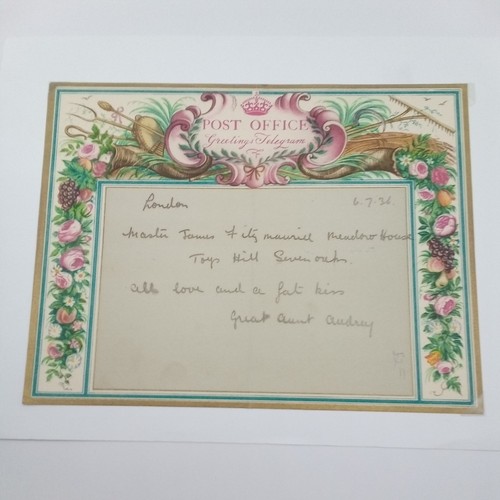 POST OFFICE
Greetings Telegram
London 6.7.36
Master James Fitzmaurice Meadow House
Toys Hill Sevenoaks.
all love and a fat kiss
Great Aunt Audrey